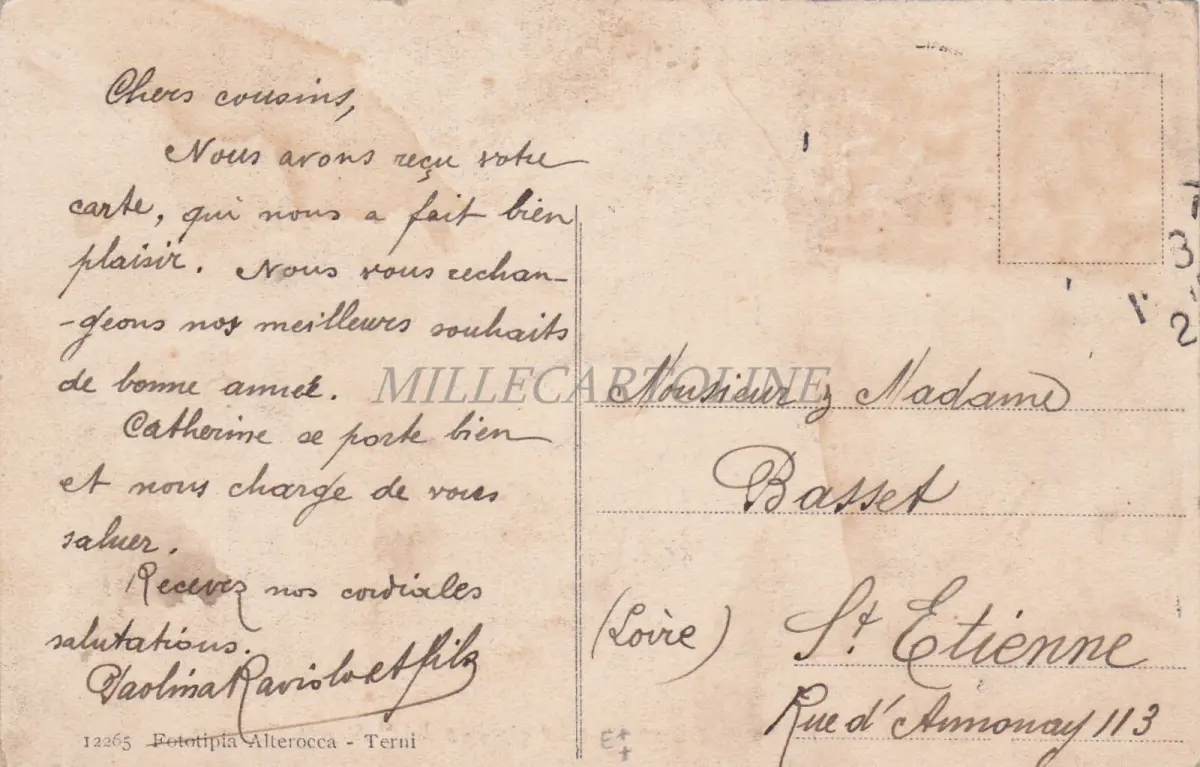 Chers cousins,
Nous avons reçu votre
carte, qui nous a fait bien
plaisir. Nous vous rechan-
-geons nos meilleurs souhaits
de bonne année.
Catherine se porte bien
et nous charge de vous
saluer.
Recevez nos cordiales
salutations.
et fils
12265 Fototipia Alterocca - Terni
MILLECARTOLINE
3
2
Monsieur & Madame
Basset
(Loire)
St. Etienne
Rue d'Annonay 113
E++